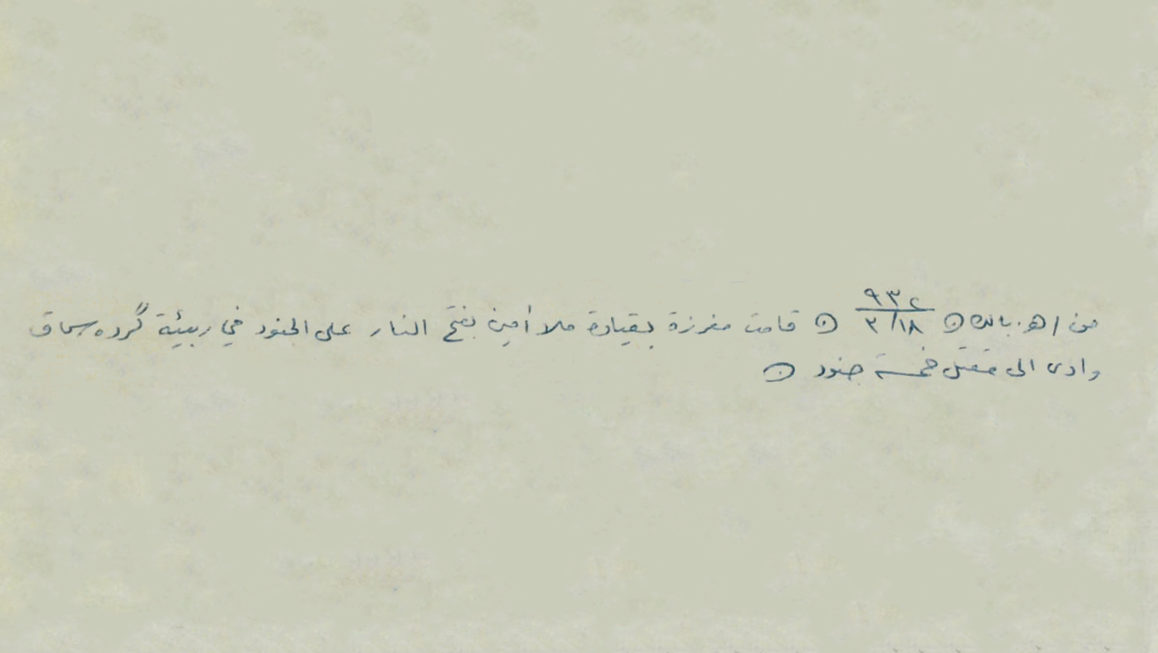 من / هـ. بالك ⊙ ٩٣٢ ٣/١٨ ⊙ قامت مفرزة بقيادة ملا أمين بفتح النار على الجنود في ربيئة گرده سماق
وادى الى مقتل خمسة جنود ⊙